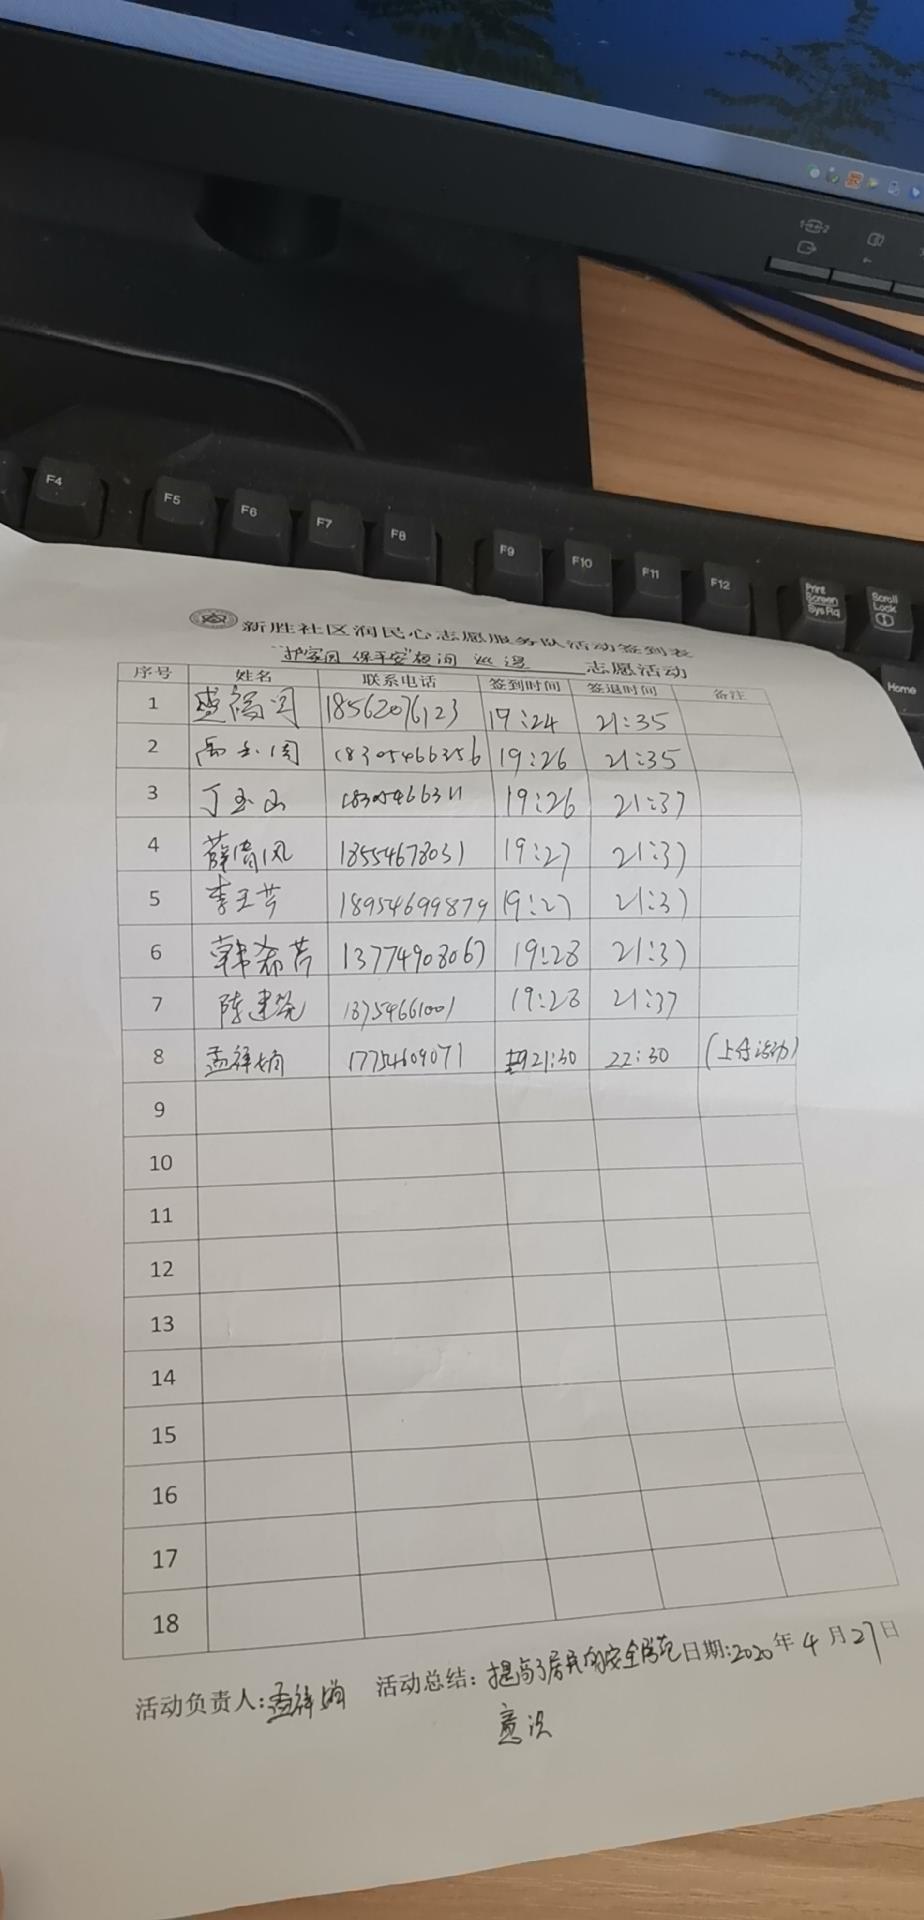 F4 F5 F6 F7 F8 F9 F10 F11 F12 Print Screen SysRq Scroll Lock
Home
新胜社区润民心志愿服务队活动签到表
"护家园 保平安"夜间 巡逻 志愿活动
序号 姓名 联系电话 签到时间 签退时间 备注
1 18562076123 19:24 21:35
2 18305466356 19:26 21:35
3 丁玉 19:26 21:37
4 薛 风 18554678031 19:27 21:37
5 李玉芳 18954699879 19:27 21:37
6 韩希芳 13774908067 19:28 21:37
7 陈建 18754661001 19:28 21:37
8 孟祥娟 17754609071 21:30 22:30
9
10
11
12
13
14
15
16
17
18
活动负责人:孟祥娟 活动总结:提高了居民的安全防范 日期:2020年4月27日
意识